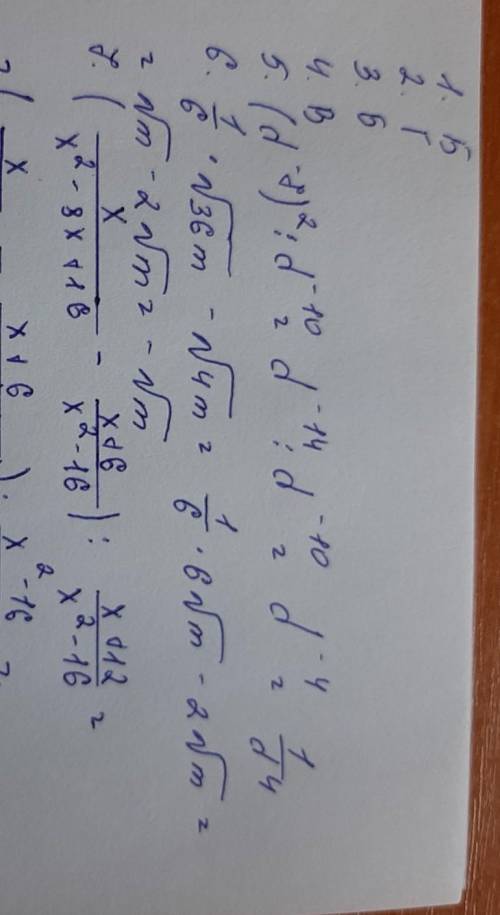 1. Б
2. Г
3. Б
4. В
5. (d⁻⁷)² : d⁻¹⁰ = d⁻¹⁴ : d⁻¹⁰ = d⁻⁴ = 1/d⁴
6. 1/6 · √36m - √4m = 1/6 · 6√m - 2√m =
= √m - 2√m = -√m
7. (x/(x² - 8x + 16) - (x+6)/(x² - 16)) : (x+12)/(x² - 16) =
= (x - x+6) · x² - 16 =